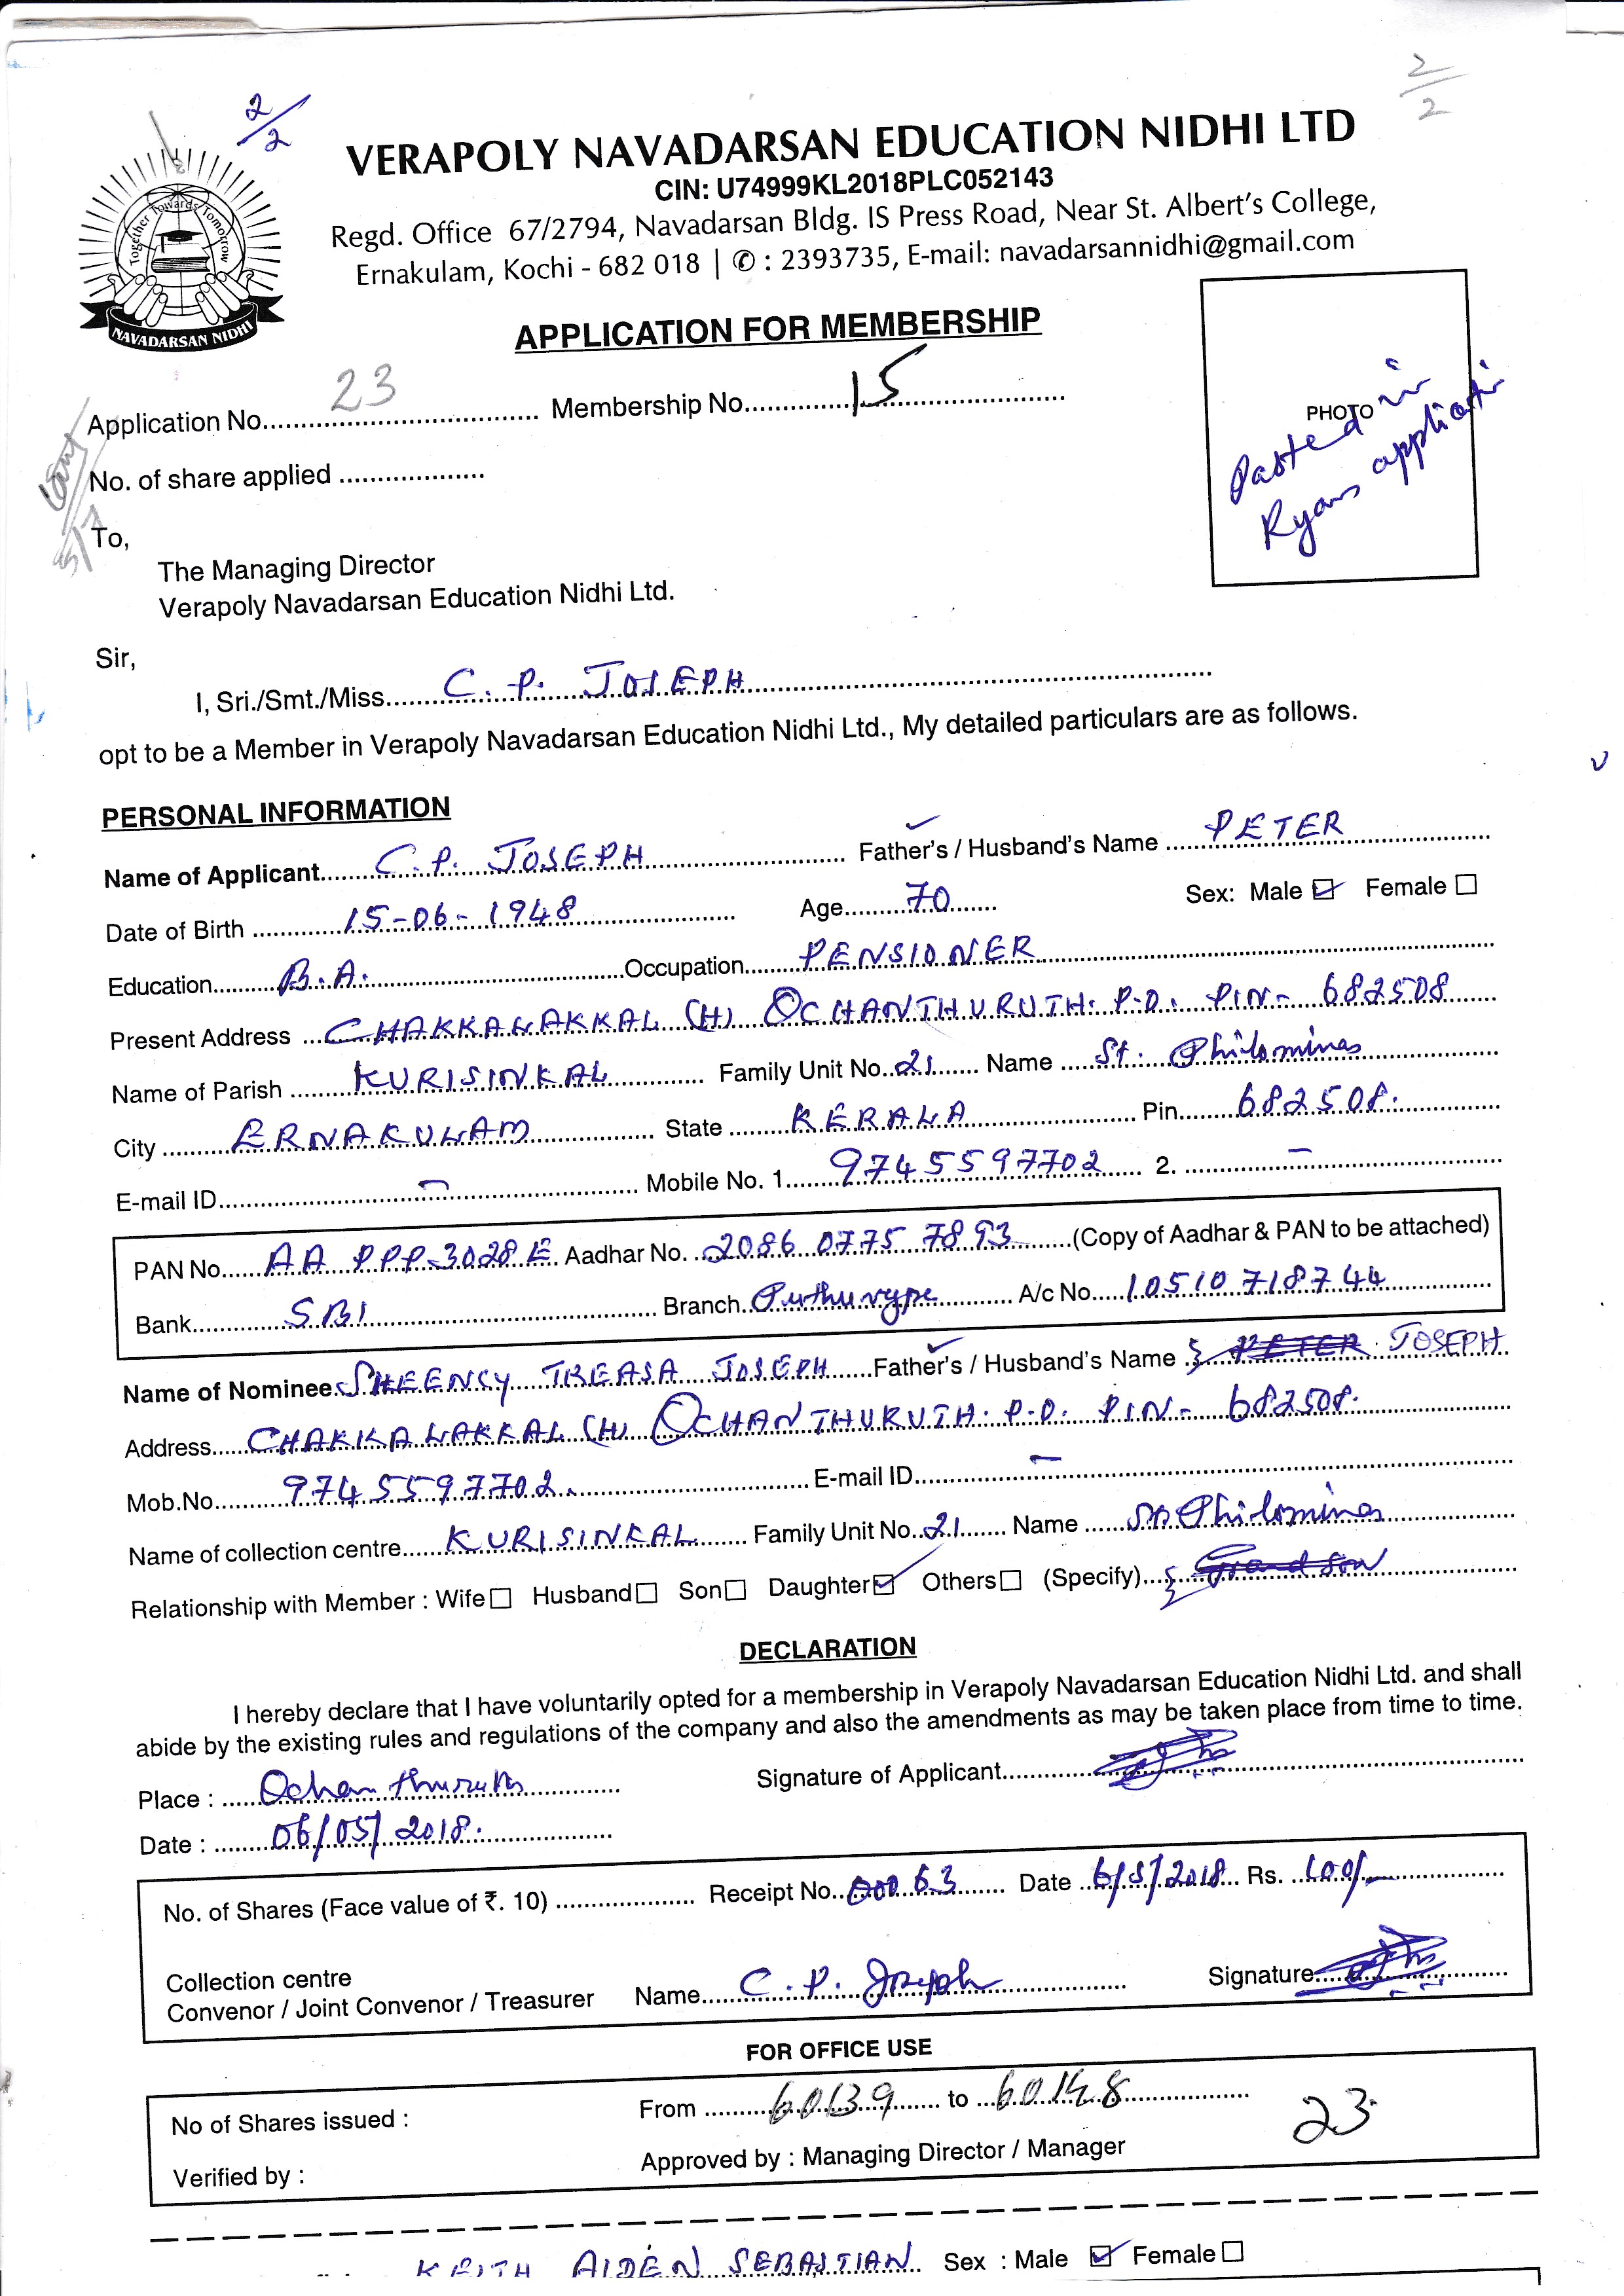 2/2
2/2
VERAPOLY NAVADARSAN EDUCATION NIDHI LTD
CIN: U74999KL2018PLC052143
Regd. Office 67/2794, Navadarsan Bldg. IS Press Road, Near St. Albert's College,
Ernakulam, Kochi - 682 018 | ✆ : 2393735, E-mail: navadarsannidhi@gmail.com
Together Towards Tomorrow
NAVADARSAN NIDHI
APPLICATION FOR MEMBERSHIP
Application No. 23 Membership No. 15
PHOTO
Pasted in
Ryans application
No. of share applied
To,
The Managing Director
Verapoly Navadarsan Education Nidhi Ltd.
Sir,
I, Sri./Smt./Miss. C. P. JOSEPH
opt to be a Member in Verapoly Navadarsan Education Nidhi Ltd., My detailed particulars are as follows.
PERSONAL INFORMATION
Name of Applicant C. P. JOSEPH Father's / Husband's Name PETER
Date of Birth 15-06-1948 Age 70 Sex: Male ☑ Female ☐
Education B.A. Occupation PENSIONER
Present Address CHAKKALAKKAL (H) OCHANTHURUTH. P.O. PIN- 682508
Name of Parish KURISINKAL Family Unit No. 21 Name St. Philominas
City ERNAKULAM State KERALA Pin 682508.
E-mail ID – Mobile No. 1. 9745597702 2. –
PAN No. AA PPP 3028 E Aadhar No. 2086 0775 7893 (Copy of Aadhar & PAN to be attached)
Bank SBI Branch Puthuvype A/c No. 10510718744
Name of Nominee SHEENCY TREASA JOSEPH Father's / Husband's Name PETER JOSEPH
Address CHAKKALAKKAL (H) OCHANTHURUTH. P.O. PIN- 682508.
Mob.No. 9745597702. E-mail ID –
Name of collection centre KURISINKAL Family Unit No. 21 Name St Philominas
Relationship with Member : Wife ☐ Husband ☐ Son ☐ Daughter ☑ Others ☐ (Specify) Grand son
DECLARATION
I hereby declare that I have voluntarily opted for a membership in Verapoly Navadarsan Education Nidhi Ltd. and shall
abide by the existing rules and regulations of the company and also the amendments as may be taken place from time to time.
Place : Ochanthuruth Signature of Applicant
Date : 06/05/2018.
No. of Shares (Face value of ₹. 10) Receipt No. 00063 Date 6/5/2018 Rs. 100/-
Collection centre
Convenor / Joint Convenor / Treasurer Name C. P. Joseph Signature
FOR OFFICE USE
No of Shares issued : From 60139 to 60148 23
Verified by : Approved by : Managing Director / Manager
KEITH AIDEN SEBASTIAN Sex : Male ☑ Female ☐